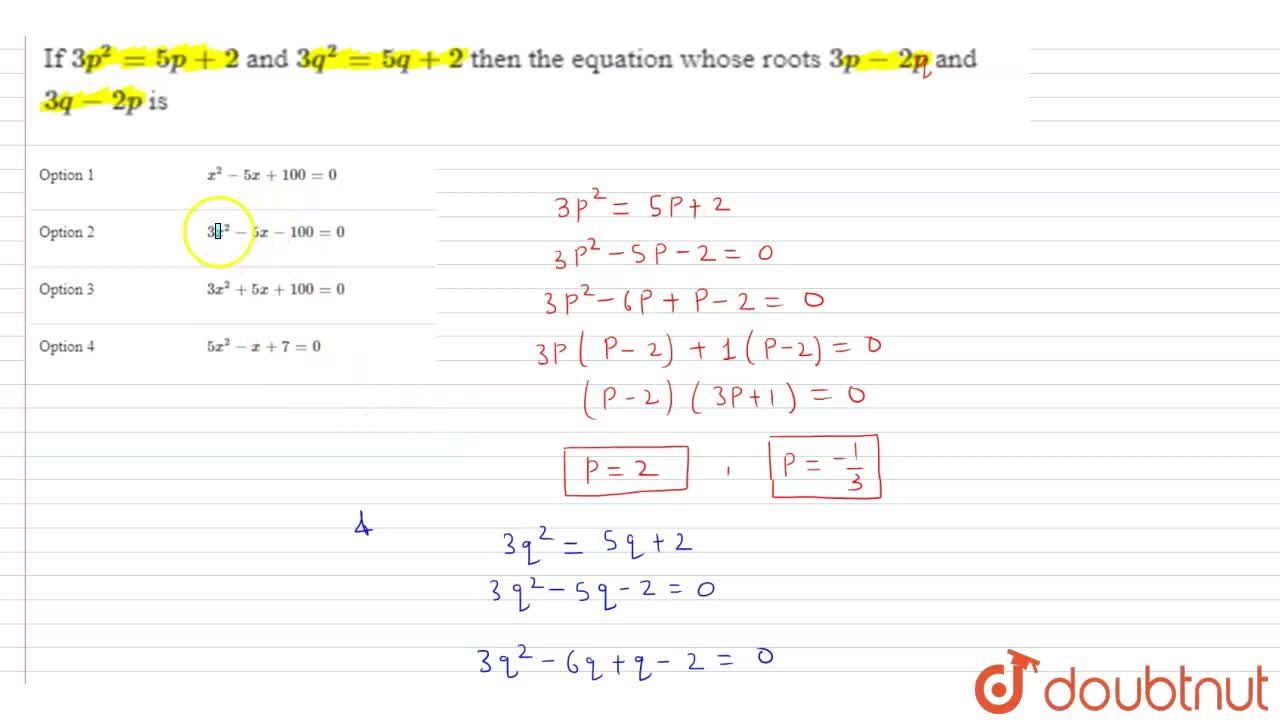 If 3p² = 5p + 2 and 3q² = 5q + 2 then the equation whose roots 3p − 2q and
3q − 2p is
Option 1 x² − 5x + 100 = 0
Option 2 3x² − 5x − 100 = 0
Option 3 3x² + 5x + 100 = 0
Option 4 5x² − x + 7 = 0
3p² = 5p + 2
3p² − 5p − 2 = 0
3p² − 6p + p − 2 = 0
3p(p − 2) + 1(p − 2) = 0
(p − 2)(3p + 1) = 0
p = 2 , p = −1/3
3q² = 5q + 2
3q² − 5q − 2 = 0
3q² − 6q + q − 2 = 0
doubtnut